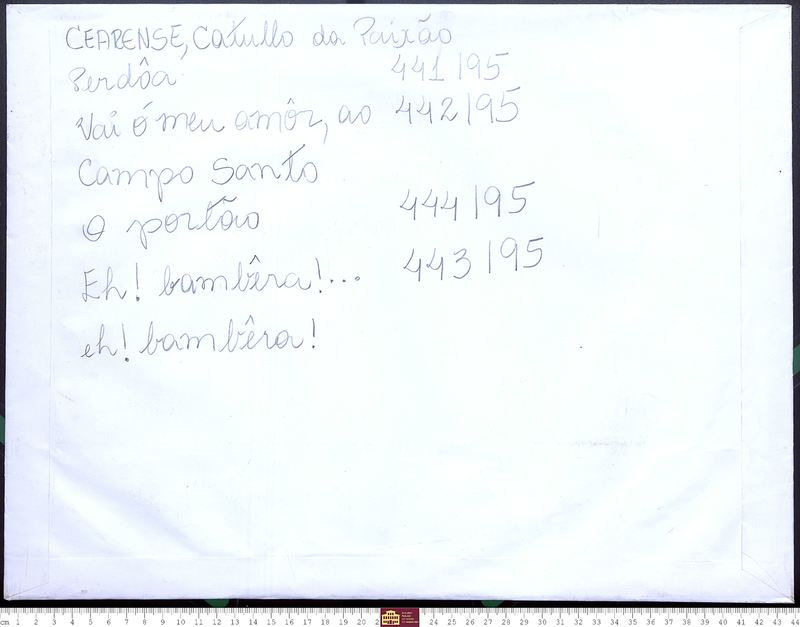 CEARENSE, Catullo da Paixão
Perdôa 441/95
Vai ó meu amôr, ao 442/95
Campo Santo
O portão 444/95
Eh! bambêra!... 443/95
eh! bambêra!
cm 1 2 3 4 5 6 7 8 9 10 11 12 13 14 15 16 17 18 19 20 24 25 26 27 28 29 30 31 32 33 34 35 36 37 38 39 40 41 42 43 44